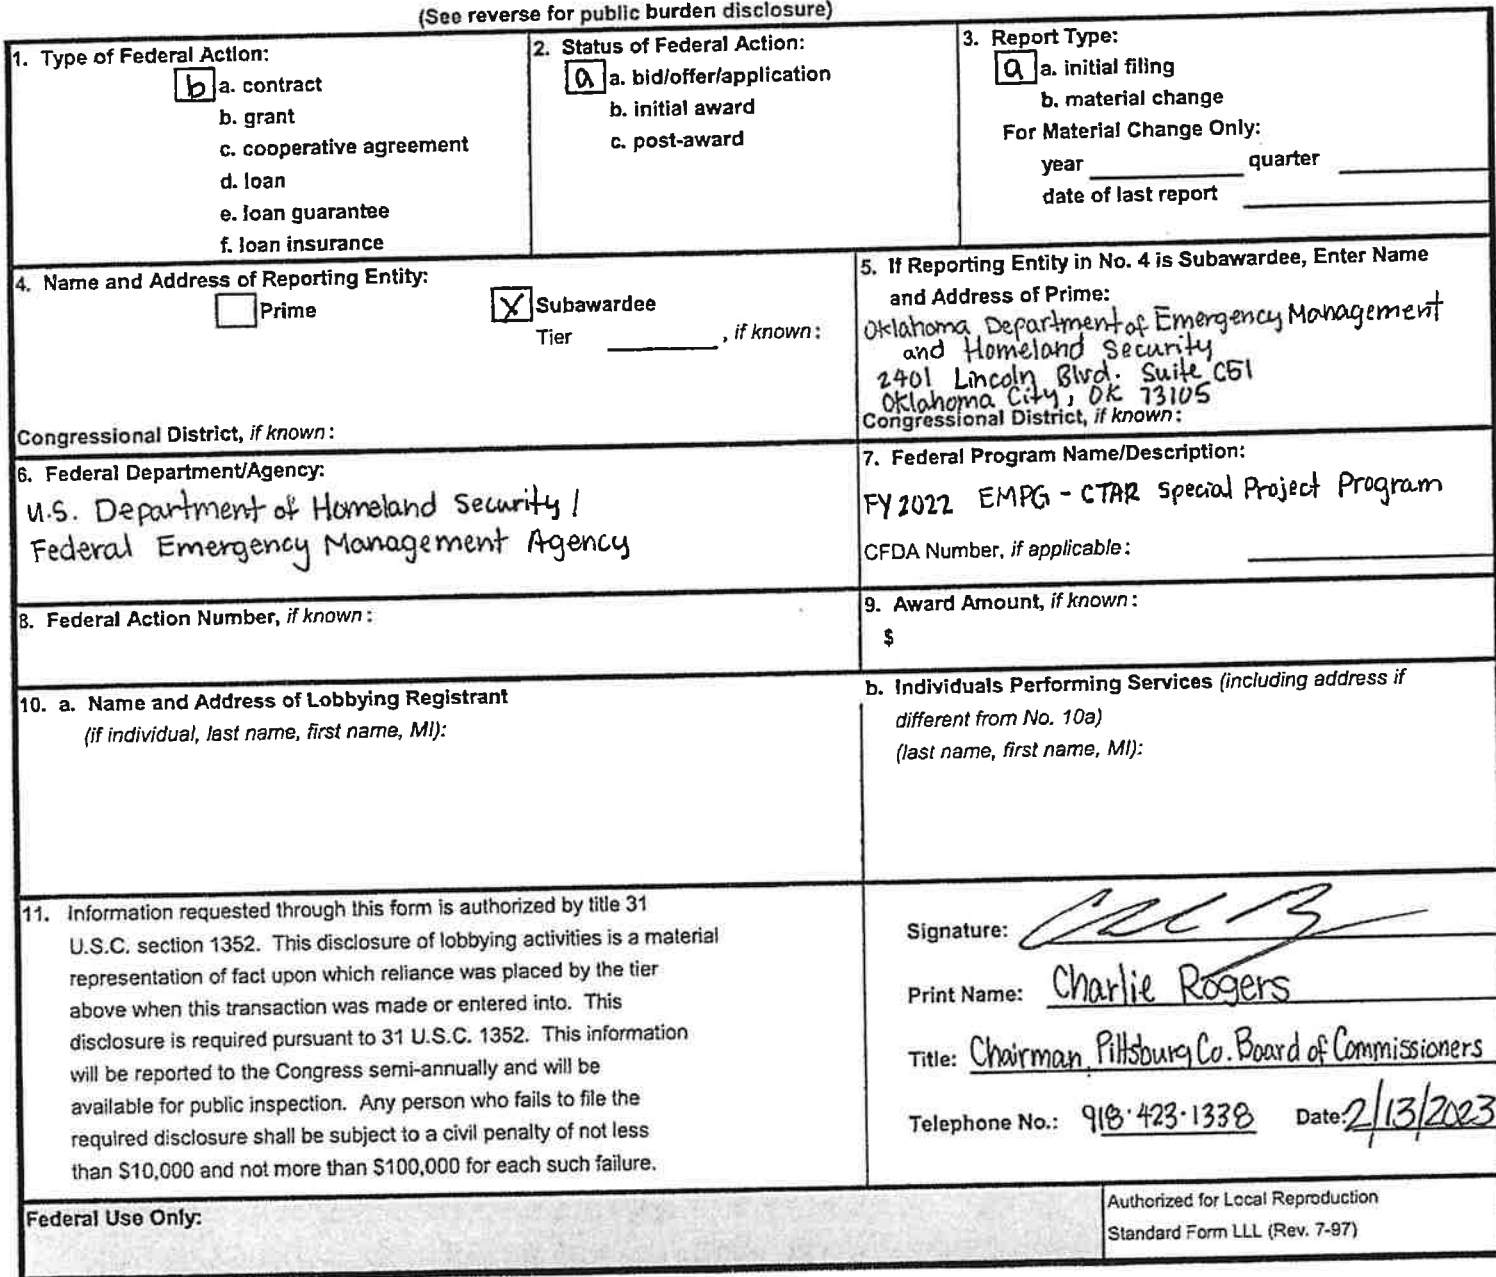 (See reverse for public burden disclosure)
1. Type of Federal Action:
b a. contract
b. grant
c. cooperative agreement
d. loan
e. loan guarantee
f. loan insurance
2. Status of Federal Action:
a a. bid/offer/application
b. initial award
c. post-award
3. Report Type:
a a. initial filing
b. material change
For Material Change Only:
year quarter
date of last report
4. Name and Address of Reporting Entity:
Prime X Subawardee
Tier , if known:
Congressional District, if known:
5. If Reporting Entity in No. 4 is Subawardee, Enter Name
and Address of Prime:
Oklahoma Department of Emergency Management
and Homeland Security
2401 Lincoln Blvd. Suite C51
Oklahoma City, OK 73105
Congressional District, if known:
6. Federal Department/Agency:
U.S. Department of Homeland Security /
Federal Emergency Management Agency
7. Federal Program Name/Description:
FY 2022 EMPG - CTAR Special Project Program
CFDA Number, if applicable:
8. Federal Action Number, if known:
9. Award Amount, if known:
$
10. a. Name and Address of Lobbying Registrant
(if individual, last name, first name, MI):
b. Individuals Performing Services (including address if
different from No. 10a)
(last name, first name, MI):
11. Information requested through this form is authorized by title 31
U.S.C. section 1352. This disclosure of lobbying activities is a material
representation of fact upon which reliance was placed by the tier
above when this transaction was made or entered into. This
disclosure is required pursuant to 31 U.S.C. 1352. This information
will be reported to the Congress semi-annually and will be
available for public inspection. Any person who fails to file the
required disclosure shall be subject to a civil penalty of not less
than $10,000 and not more than $100,000 for each such failure.
Signature:
Print Name: Charlie Rogers
Title: Chairman, Pittsburg Co. Board of Commissioners
Telephone No.: 918.423.1338 Date: 2/13/2023
Federal Use Only:
Authorized for Local Reproduction
Standard Form LLL (Rev. 7-97)